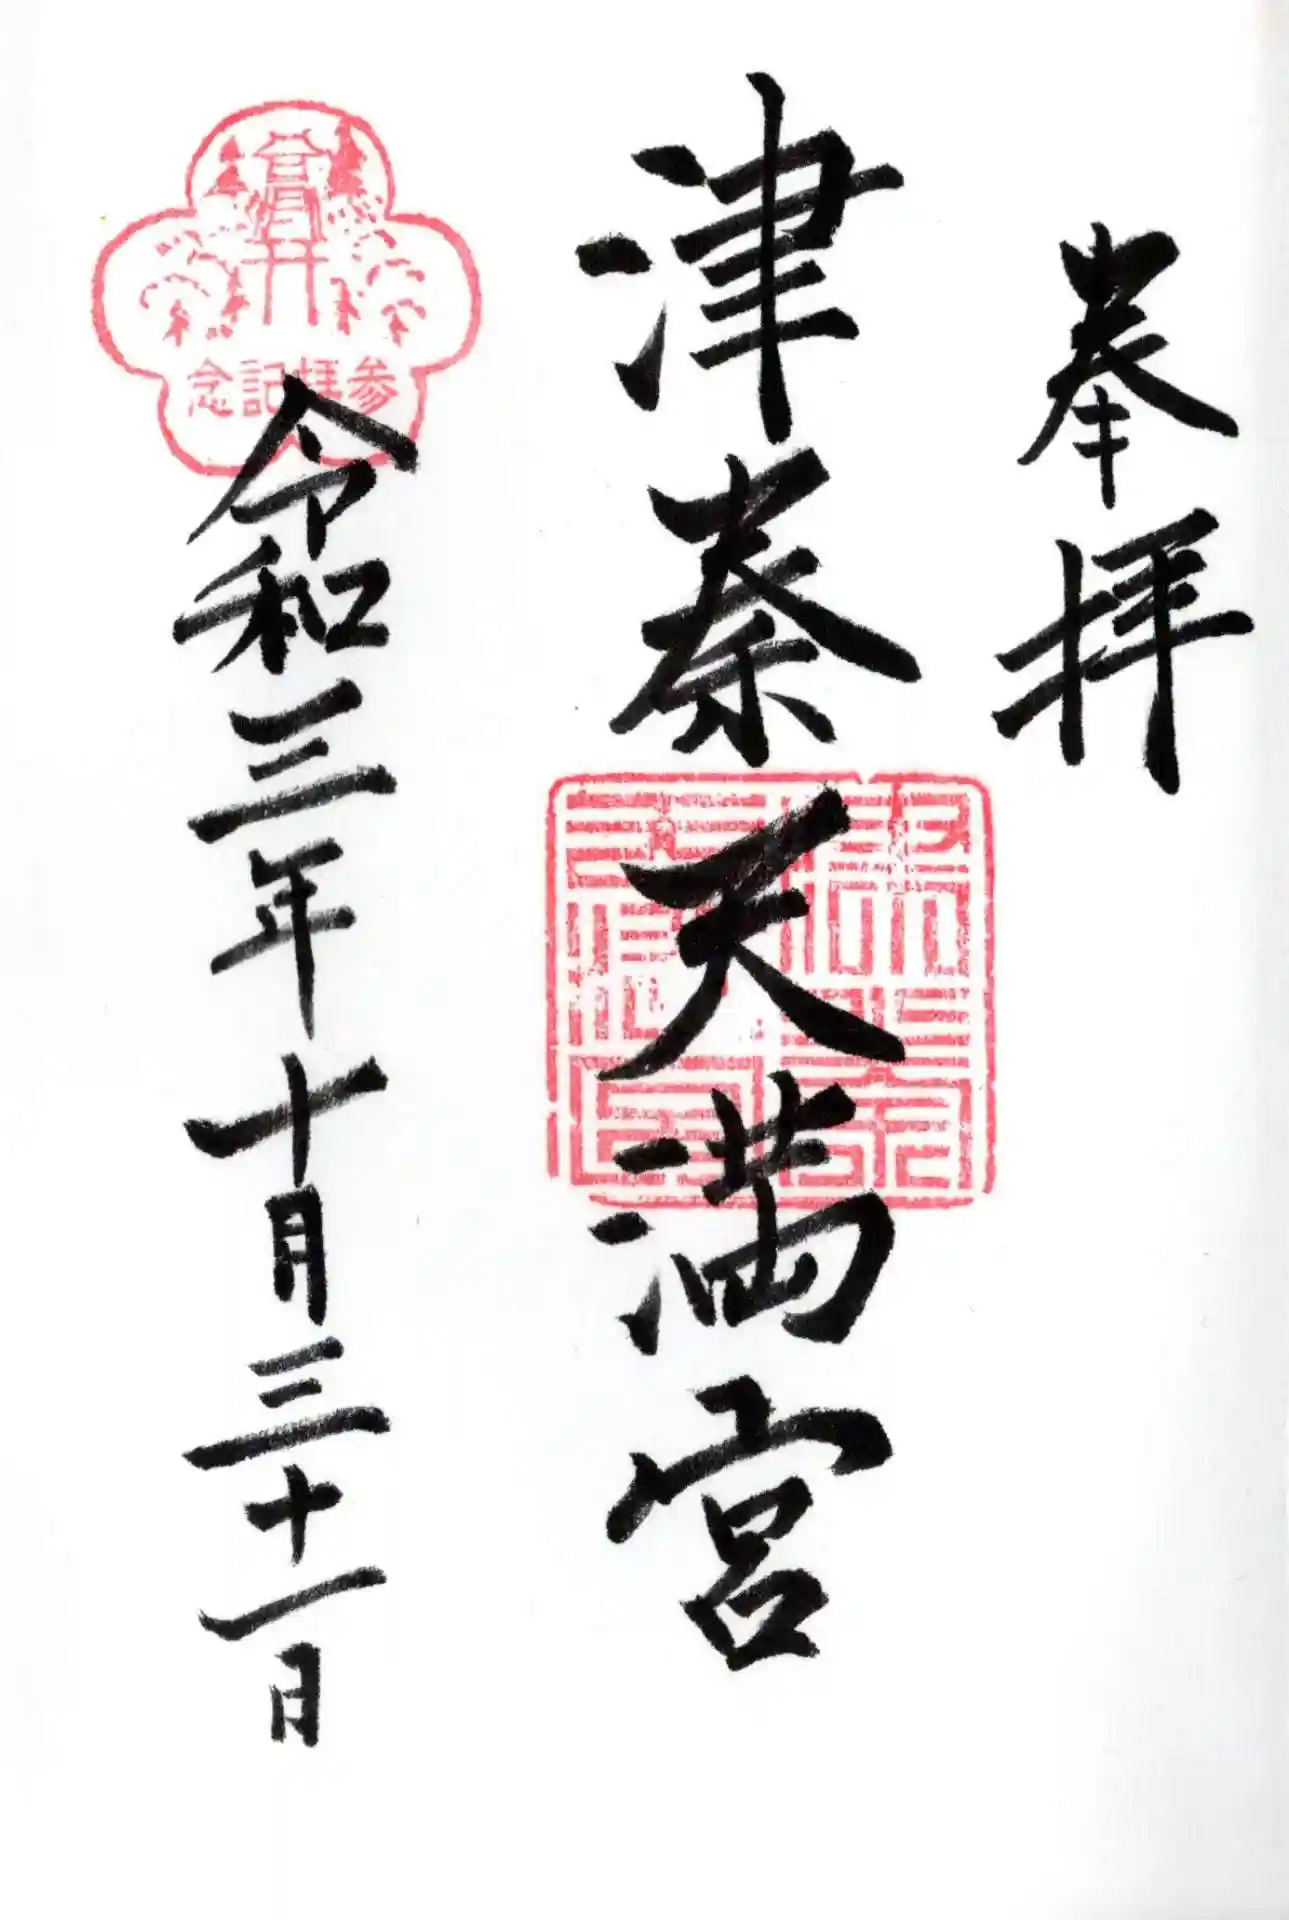 奉拝
津秦天満宮
参拝記念
令和三年十月三十一日